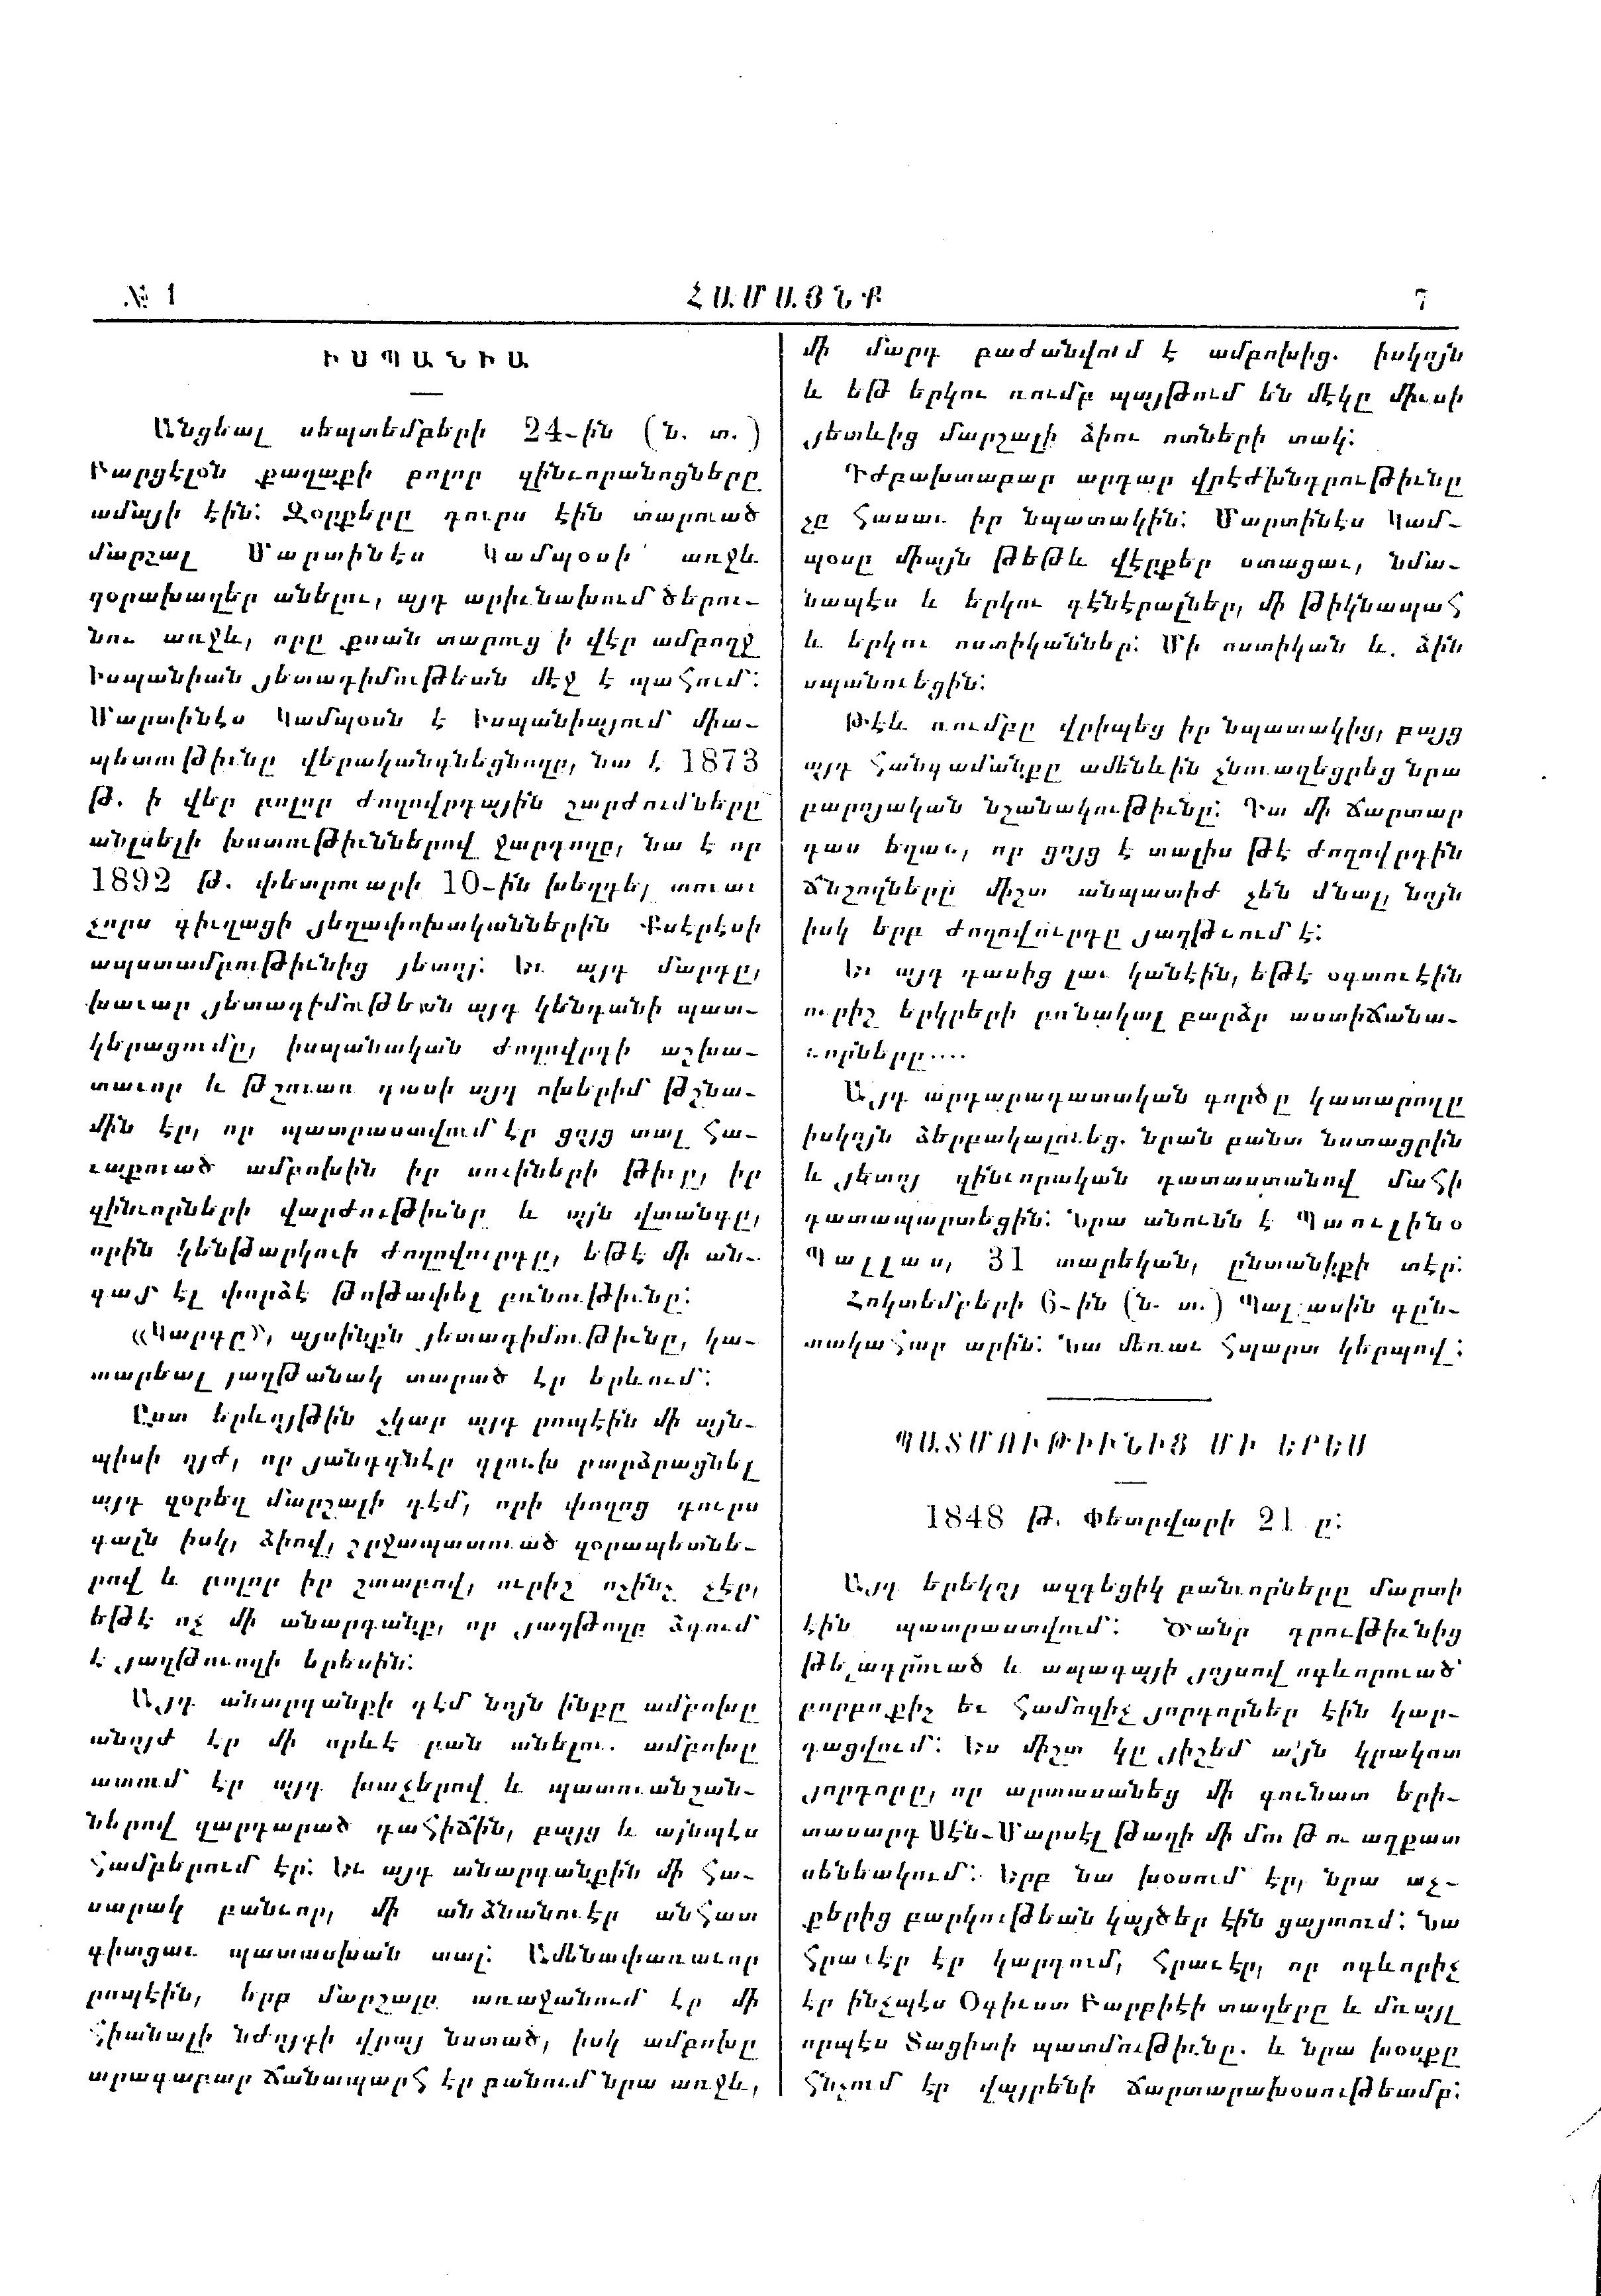 № 1
ՀԱՄԱՅՆՔ
7
ԻՍՊԱՆԻԱ
Անցեալ սեպտեմբերի 24-ին (ն. տ.)
Բարցէլօն քաղաքի բոլոր զինւորանոցները
ամայի էին: Զօրքերը դուրս էին տարուած
մարշալ Մարտինէս Կամպօսի առջև
զօրախաղեր անելու, այդ արիւնախում ծերու-
նու առջև, որը քսան տարուց ի վէր ամբողջ
Իսպանիան յետադիմութեան մէջ է պահում:
Մարտինէս Կամպօսն է Իսպանիայում միա-
պետութիւնը վերականգնեցնողը, նա է 1873
թ. ի վեր բոլոր ժողովրդային շարժումները
անլսելի խստութիւններով ջարդողը, նա է որ
1892 թ. փետրուարի 10-ին խեղդել տուաւ
չորս գիւղացի յեղափոխականներին Քսէրէսի
ապստամբութիւնից յետոյ: Եւ այդ մարդը,
խաւար յետադիմութեան այդ կենդանի պատ-
կերացումը, իսպանական ժողովրդի աշխա-
տաւոր և թշուառ դասի այդ ոխերիմ թշնա-
մին էր, որ պատրաստվում էր ցոյց տալ հա-
ւաքուած ամբոխին իր սուիների թիւը, իր
զինւորների վարժութիւնը և այն վտանգը,
որին կենթարկուի ժողովուրդը, եթէ մի ան-
գամ էլ փորձէ թոթափել բռնութիւնը:
«Կարգը», այսինքն յետադիմութիւնը, կա-
տարեալ յաղթանակ տարած էր երևում:
Ըստ երևոյթին չկար այդ րոպէին մի այն-
պիսի ոյժ, որ յանդգնէր գլուխ բարձրացնել
այդ զօրեղ մարշալի դէմ, որի փողոց դուրս
գալն իսկ, ձիով, շրջապատուած զօրապետնե-
րով և բոլոր իր շտաբով, ուրիշ ոչինչ չէր,
եթէ ոչ մի անարգանք, որ յաղթողը ձգում
է յաղթուողի երեսին:
Այդ անարգանքի դէմ նոյն ինքը ամբոխը
անոյժ էր մի որևէ բան անելու. ամբոխը
ատում էր այդ խաչերով և պատուանշան-
ներով զարդարած դահիճին, բայց և այնպէս
համբերում էր: Եւ այդ անարգանքին մի հա-
սարակ բանւոր, մի անձնանուէր անհատ
գիտցաւ պատասխան տալ: Ամենափառաւոր
րոպէին, երբ մարշալը առաջանում էր մի
հիանալի նժոյգի վրայ նստած, իսկ ամբոխը
արագաբար ճանապարհ էր բանում նրա առջև,
մի մարդ բաժանվում է ամբոխից. իսկոյն
և եթ երկու ռումբ պայթում են մէկը միւսի
յետևից մարշալի ձիու ոտների տակ:
Դժբախտաբար արդար վրէժխնդրութիւնը
չը հասաւ իր նպատակին: Մարտինէս Կամ-
պօսը միայն թեթև վէրքեր ստացաւ, նմա-
նապէս և երկու գէնէրալներ, մի թիկնապահ
և երկու ոստիկաններ: Մի ոստիկան և ձին
սպանուեցին:
Թէև ռումբը վրիպեց իր նպատակից, բայց
այդ հանգամանքը ամենևին չնուազեցրեց նրա
բարոյական նշանակութիւնը: Դա մի ճարտար
դաս եղաւ, որ ցոյց է տալիս թէ ժողովրդին
ճնշողները միշտ անպատիժ չեն մնալ, նոյն
իսկ երբ ժողովուրդը յաղթւում է:
Եւ այդ դասից լաւ կանէին, եթէ օգտուէին
ուրիշ երկրների բռնակալ բարձր աստիճանա-
ւորները....
Այդ արդարադատական գործը կատարողը
իսկոյն ձերբակալուեց. նրան բանտ նստացրին
և յետոյ զինւորական դատաստանով մահի
դատապարտեցին: Նրա անունն է Պաուլինօ
Պալլաս, 31 տարեկան, ընտանիքի տէր:
Հոկտեմբերի 6-ին (ն. տ.) Պալլասին գըն-
տակահար արին: Նա մեռաւ հպարտ կերպով:
ՊԱՏՄՈՒԹԻՒՆԻՑ ՄԻ ԵՐԵՍ
1848 թ. Փետրվարի 21 ը:
Այդ երեկոյ ազդեցիկ բանւորները մարտի
էին պատրաստվում: Ծանր գրութիւնից
թելադրուած և ապագայի յոյսով ոգևորուած
բորբոքիչ եւ համոզիչ յորդորներ էին կար-
դացվում: Ես միշտ կը յիշեմ այն կրակոտ
յորդորը, որ արտասանեց մի գունատ երի-
տասարդ Սէն-Մարսէլ թաղի մի մութ ու աղքատ
սենեակում: Երբ նա խօսում էր, նրա աչ-
քերից բարկութեան կայծեր էին ցայտում: Նա
հրաւէր էր կարդում, հրաւէր, որ ոգևորիչ
էր ինչպէս Օգիւստ Բարբիէի տաղերը և մռայլ
որպէս Տացիտի պատմութիւնը. և նրա խօսքը
հնչում էր վայրենի ճարտարախօսութեամբ: